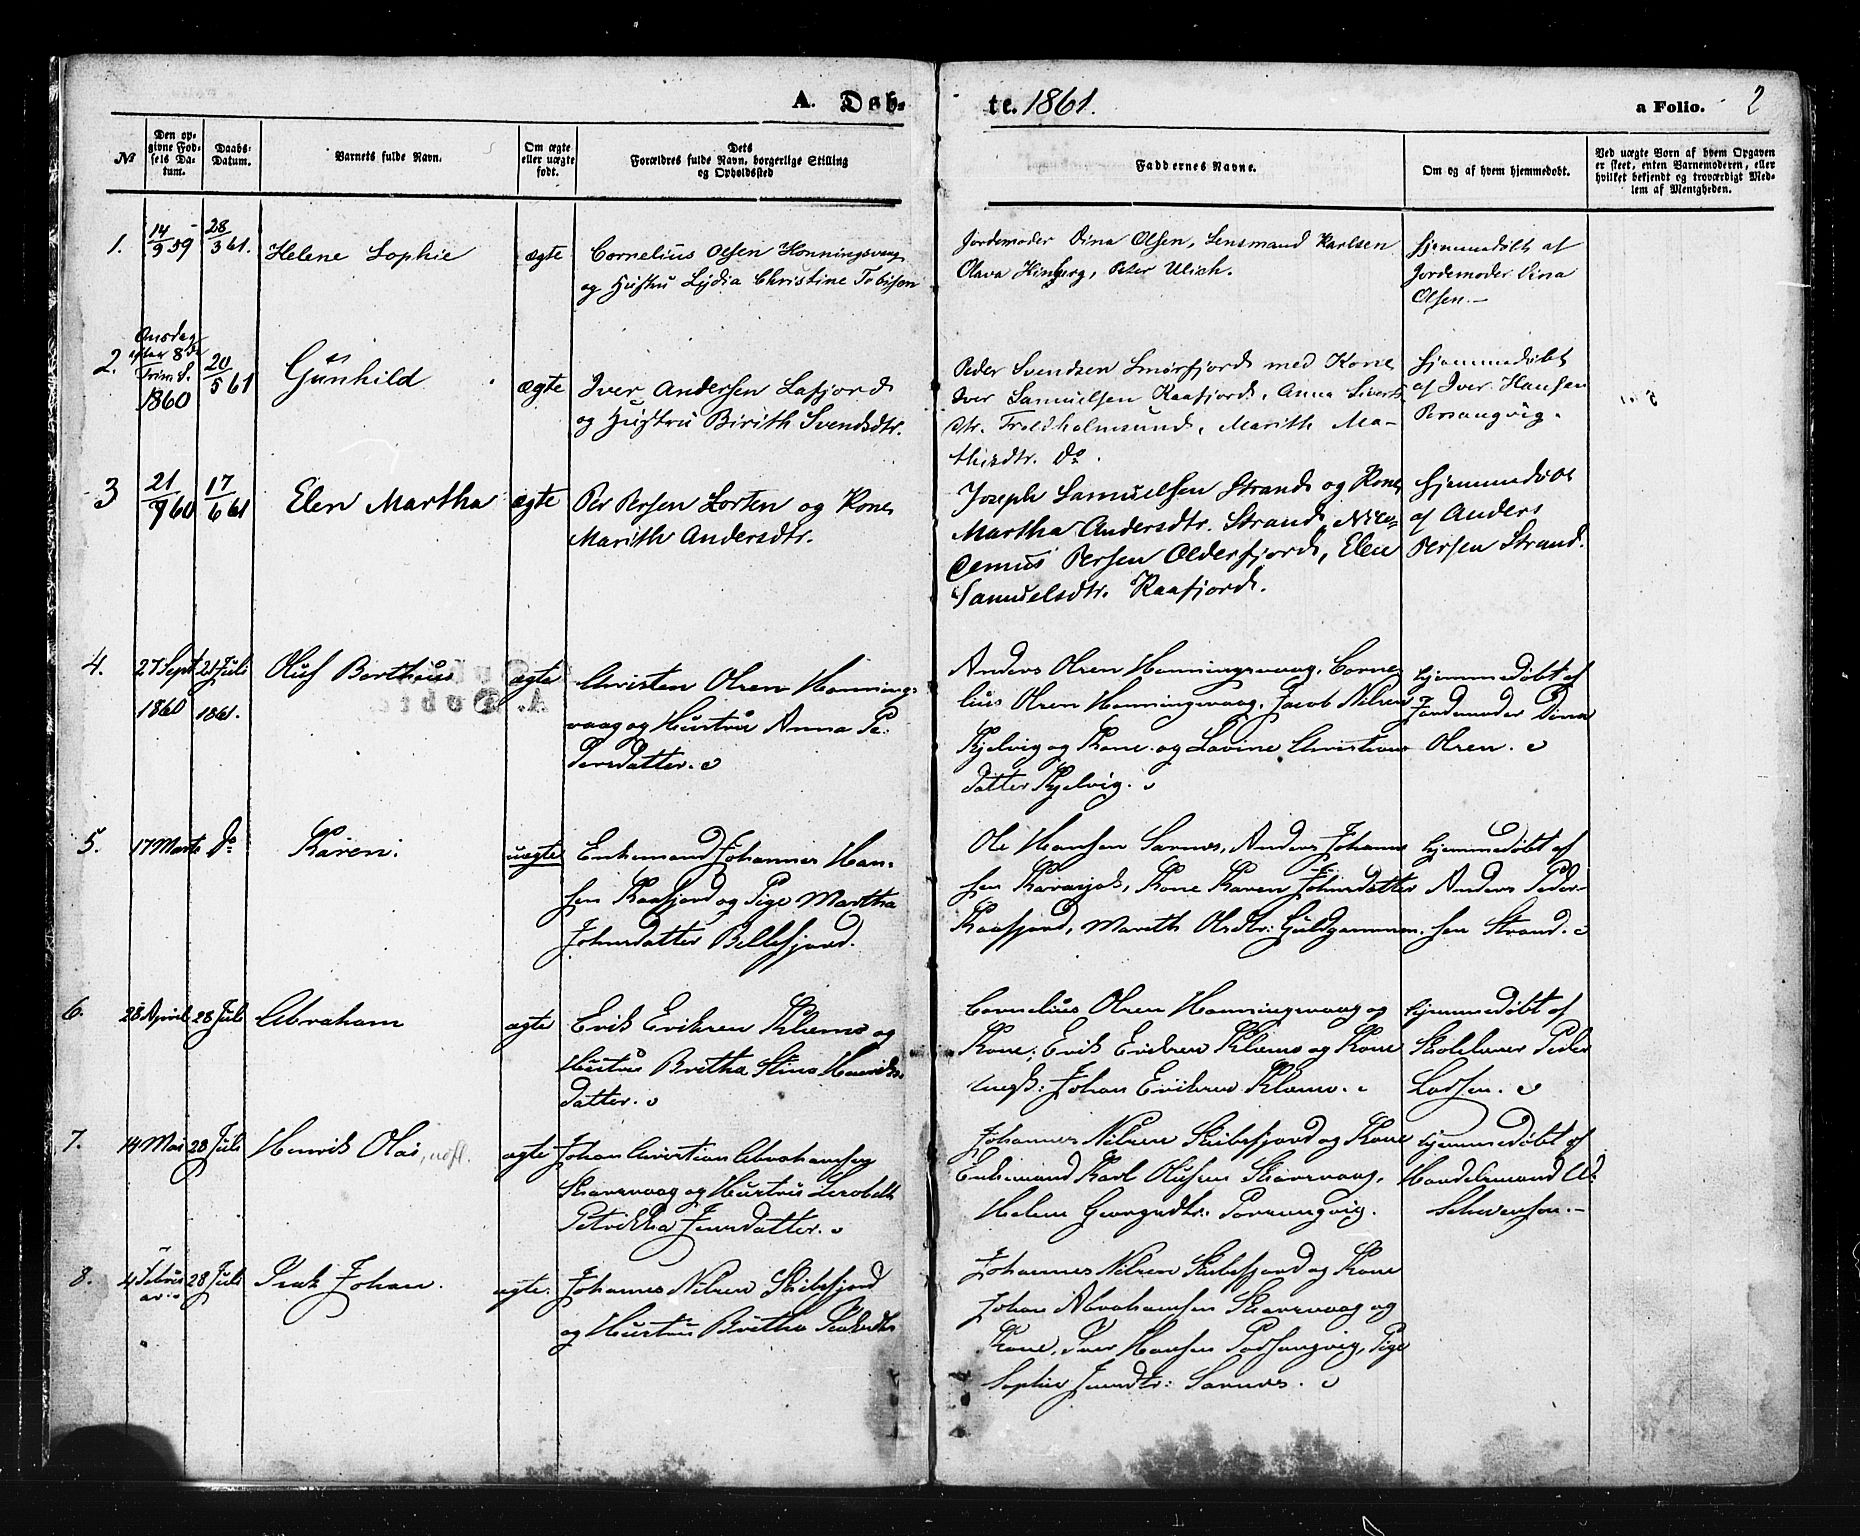 A. Døb-
te. 1861.
a Folio. 2
№
Den op-
givne Fød-
sels Da-
tum.
Daabs-
Datum.
Barnets fulde Navn.
Om ægte
eller uægte
født.
Dets
Forældres fulde Navn, borgerlige Stilling
og Opholdssted
Faddernes Navne.
Om og af hvem hjemmedøbt.
Ved uægte Børn af hvem Opgaven
er skeet, enten Barnemoderen, eller
hvilket bekjendt og troværdigt Med-
lem af Menigheden.
1.
14/9 59
28/3 61.
Helene Sophie
ægte
Cornelius Olsen Honningsvaag
og Hustru Lydia Christine Tobisen
Jordemoder Dina Olsen, Lensmand Karlsen
Olava Hinberg, Peter Ulich.
Hjemmedøbt af
Jordemoder Dina
Olsen.—
2.
Onsdag
efter 8de
Trin. S.
1860
20/5 61
Gunhild
ægte
Iver Andersen Lafjord
og Hustru Birith Svendsdtr.
Peder Svendsen Smørfjord med Kone
Iver Samuelsen Kaafjord, Anna Siverts
dtr. Troldholmsund, Marith Ma-
thisdtr. Do.
Hjemmedøbt
af Iver Hansen
Porsangvig.
3
21/9 60
17/6 61
Elen Martha
ægte
Per Persen Lorten og Kone
Marith Andersdtr.
Joseph Samuelsen Strand og Kone
Martha Andersdtr. Strand, Nico-
demus Persen Olderfjord, Elen
Samuelsdtr. Kaafjord.
Hjemmedøbt
af Anders
Persen Strand.
4.
27 Sept
1860
21 Juli
1861.
Oluf Berthæus
ægte
Christen Olsen Honnings-
vaag og Hustru Anna Pe-
dersdatter.
Anders Olsen Honningsvaag, Corne
lius Olsen Honningsvaag, Jacob Nilsen
Kjelvig og Kone og Lovine Christians
datter Kjelvig.
hjemmedøbt af
Jordemoder Dina
Olsen.
5.
17 Marts
Do
Karen.
uægte
Enkemand Johannes Han-
sen Kaafjord og Pige Martha
Johnsdatter Billefjord.
Ole Hansen Sarnes, Anders Johanne
sen Karasjok, Kone Karen Johnsdatter
Kaafjord, Marith Olsdtr: Guldgammen.
hjemmedøbt af
Anders Peder-
sen Strand.
6.
28 April
28 Juli
Abraham
ægte
Erik Eriksen Klemo og
Hustru Britha Stina Henriks-
datter.
Cornelius Olsen Honningsvaag og
Kone; Erik Eriksen Klemo og Kone
Ungk: Johan Eriksen Klemo.
hjemmedøbt af
Skolelærer Peder
Ladsen.
7.
14 Mai
28 Juli
Henrik Olai,
ægte
Johan Christian Abrahamsen
Skarsvaag og Hustru
Petrikka Jensdatter.
Johannes Nilsen Skibsfjord og Kone
Enkemand Karl Olussen Skarsvaag,
Helene Georgsdtr: Porsangvig.
hjemmedøbt af
Handelsmand
Schwensen.—
8.
4 Febru
ar
28 Juli
Isak Johan.
ægte.
Johannes Nilsen Skibsfjord
og Hustru Britha Isaksdtr
Johannes Nilsen Skibsfjord og Kone
Johan Abrahamsen Skarsvaag og
Kone, Iver Hansen Porsangvig, Pige
Sophie Jensdtr: Sarnes.